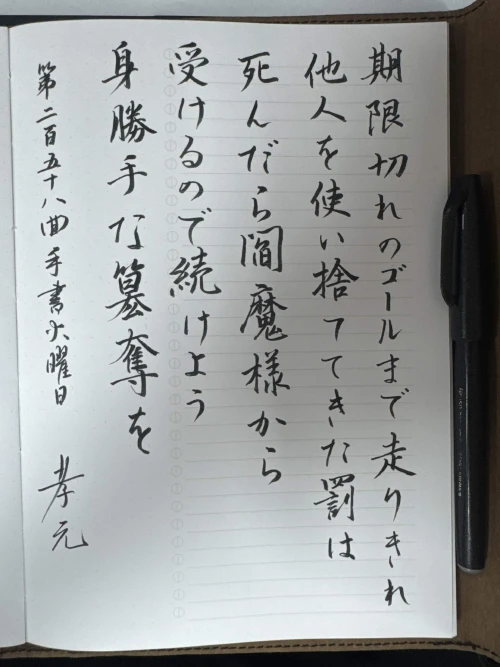 期限切れのゴールまで走りきれ
他人を使い捨ててきた罰は
死んだら閻魔様から
受けるので続けよう
身勝手な簒奪を
第二百五十八曲手書火曜日
孝元